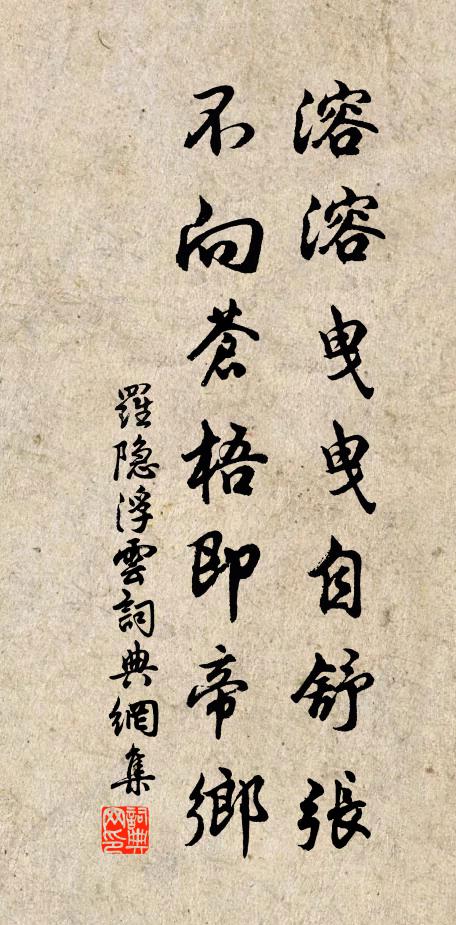 溶溶曳曳自舒張
不向蒼梧即帝鄉
羅隐浮雲詞典網集
詞典网印